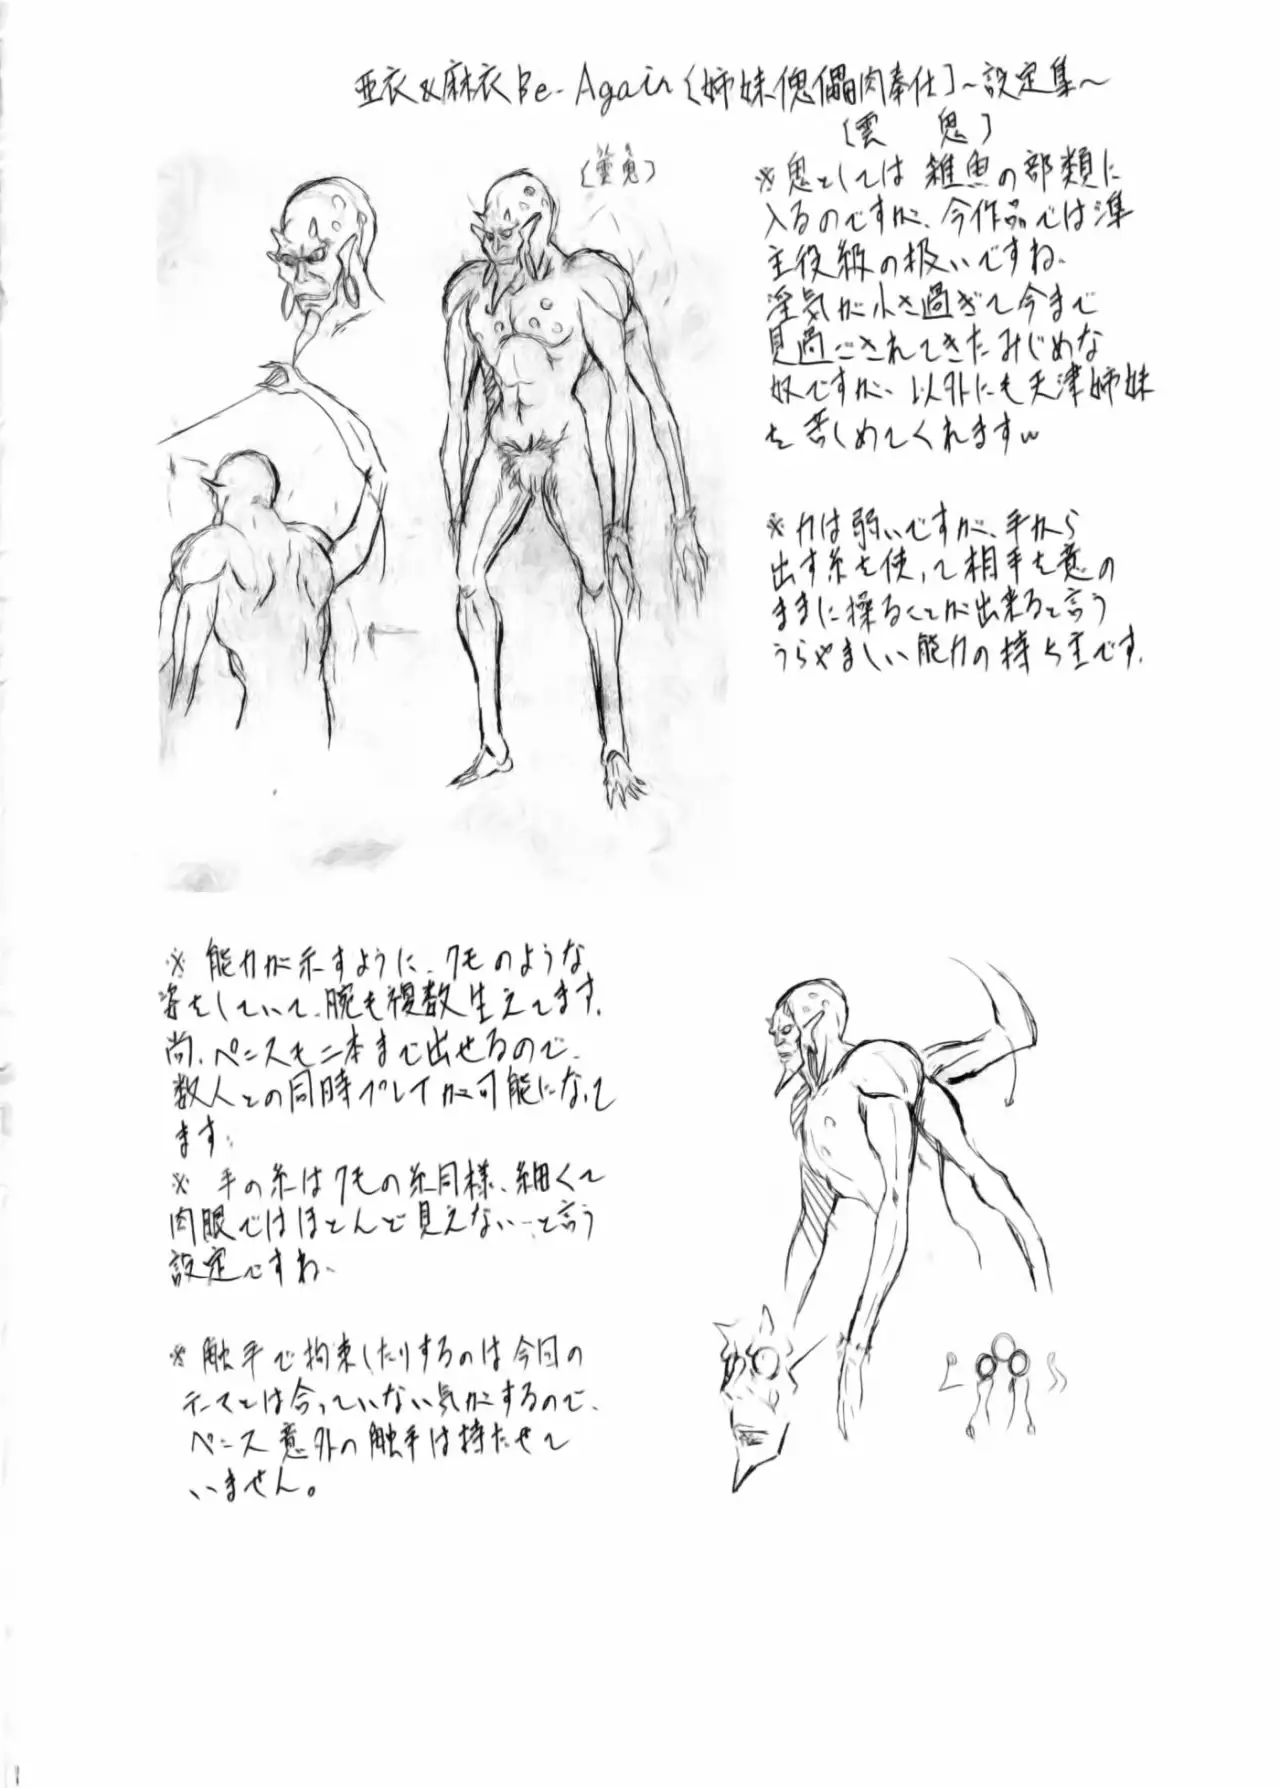 亜衣&麻衣Be-Again〔姉妹傀儡肉奉仕〕~設定集~
〔雲 鬼〕
※鬼としては雑魚の部類に
入るのですが、今作品では準
主役級の扱いですね、
淫気が小さ過ぎて今まで
見過ごされてきたみじめな
奴ですが、以外にも天津姉妹
を苦しめてくれますw
※力は弱いですが、手から
出す糸を使って相手を意の
ままに操ることが出来ると言う
うらやましい能力の持ち主です.
※能力が示すように、クモのような
姿をしていて、腕も複数生えてます.
尚、ペニスも二本まで出せるので、
数人との同時プレイが可能になって
ます.
※手の糸はクモの糸同様、細くて
肉眼ではほとんど見えない…と言う
設定ですね.
※触手で拘束したりするのは今回の
テーマとは合っていない気がするので、
ペニス意外の触手は持たせて
いません。